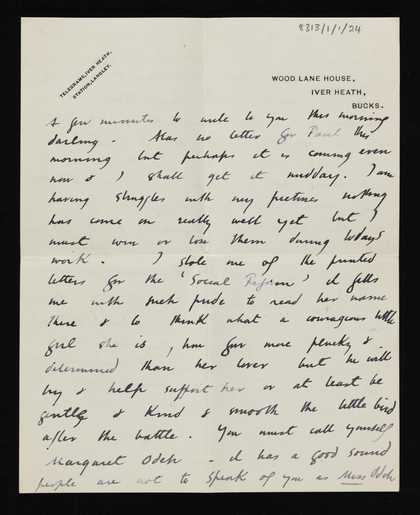 8313/1/1/24
TELEGRAMS, IVER HEATH.
STATION, LANGLEY.
WOOD LANE HOUSE,
IVER HEATH,
BUCKS.
A few minutes to write to you this morning
darling. Alas no letter for Paul this
morning but perhaps it is coming even
now & I shall get it midday. I am
having struggles with my pictures nothing
has come on really well yet but I
must win or lose them during todays
work. I stole one of the printed
letters for the 'Social Reform' it fills
me with such pride to read her name
there & to think what a courageous little
girl she is, how far more plucky &
determined than her lover but he will
try & help support her or at least be
gentle & kind & smooth the little bird
after the battle. You must call yourself
Margaret Odeh - it has a good sound
people are not to speak of you as Miss Odeh